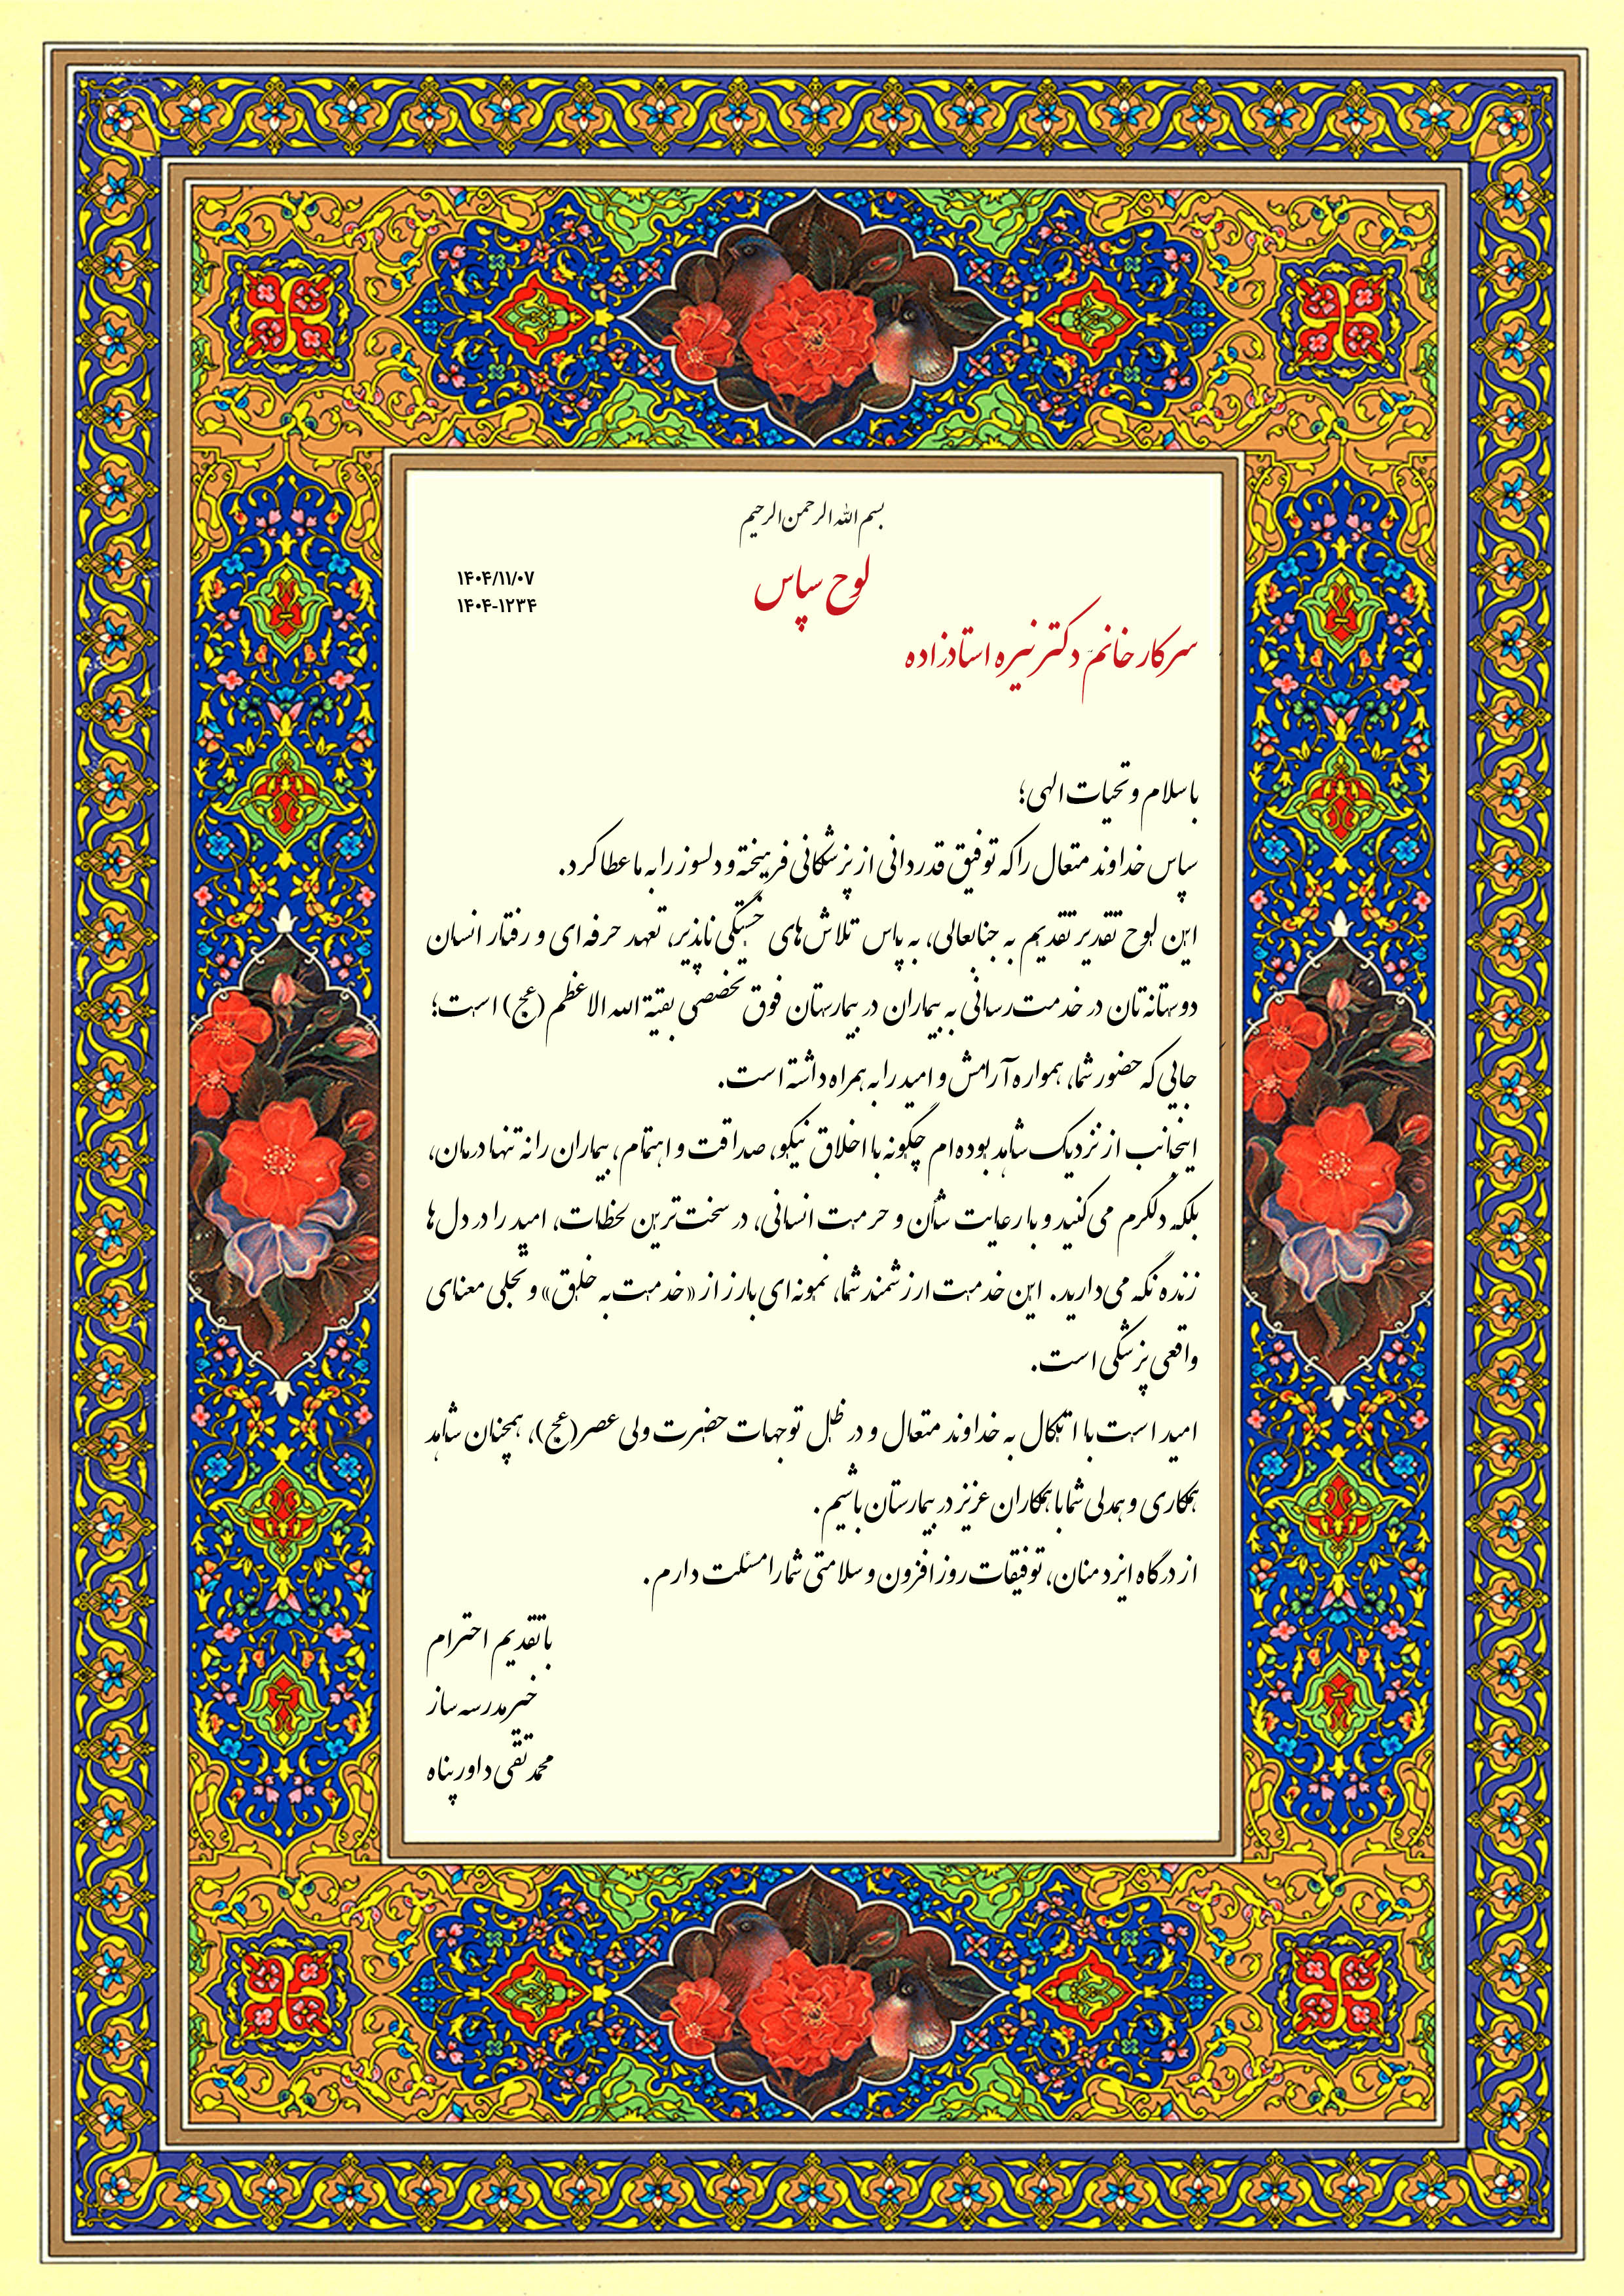 بسم الله الرحمن الرحیم
لوح سپاس
۱۴۰۴/۱۱/۰۷
۱۴۰۴-۱۲۳۴
سرکار خانم دکتر نیره استادزاده
با سلام و تحیات الهی؛
سپاس خداوند متعال را که توفیق قدردانی از پزشکانی فرهیخته و دلسوز را به ما عطا کرد.
این لوح تقدیر تقدیم به جنابعالی، به پاس تلاش‌های خستگی ناپذیر، تعهد حرفه‌ای و رفتار انسان
دوستانه‌تان در خدمت‌رسانی به بیماران در بیمارستان فوق تخصصی بقیة الله الاعظم (عج) است؛
جایی که حضور شما، همواره آرامش و امید را به همراه داشته است.
اینجانب از نزدیک شاهد بوده‌ام چگونه با اخلاق نیکو، صداقت و اهتمام، بیماران را نه تنها درمان،
بلکه دلگرم می‌کنید و با رعایت شأن و حرمت انسانی، در سخت‌ترین لحظات، امید را در دل‌ها
زنده نگه می‌دارید. این خدمت ارزشمند شما، نمونه‌ای بارز از «خدمت به خلق» و تجلی معنای
واقعی پزشکی است.
امید است با اتکال به خداوند متعال و در ظل توجهات حضرت ولی عصر(عج)، همچنان شاهد
همکاری و همدلی شما با همکاران عزیز در بیمارستان باشیم.
از درگاه ایزد منان، توفیقات روز افزون و سلامتی شما را مسئلت دارم.
با تقدیم احترام
خیر مدرسه ساز
محمد تقی داورپناه